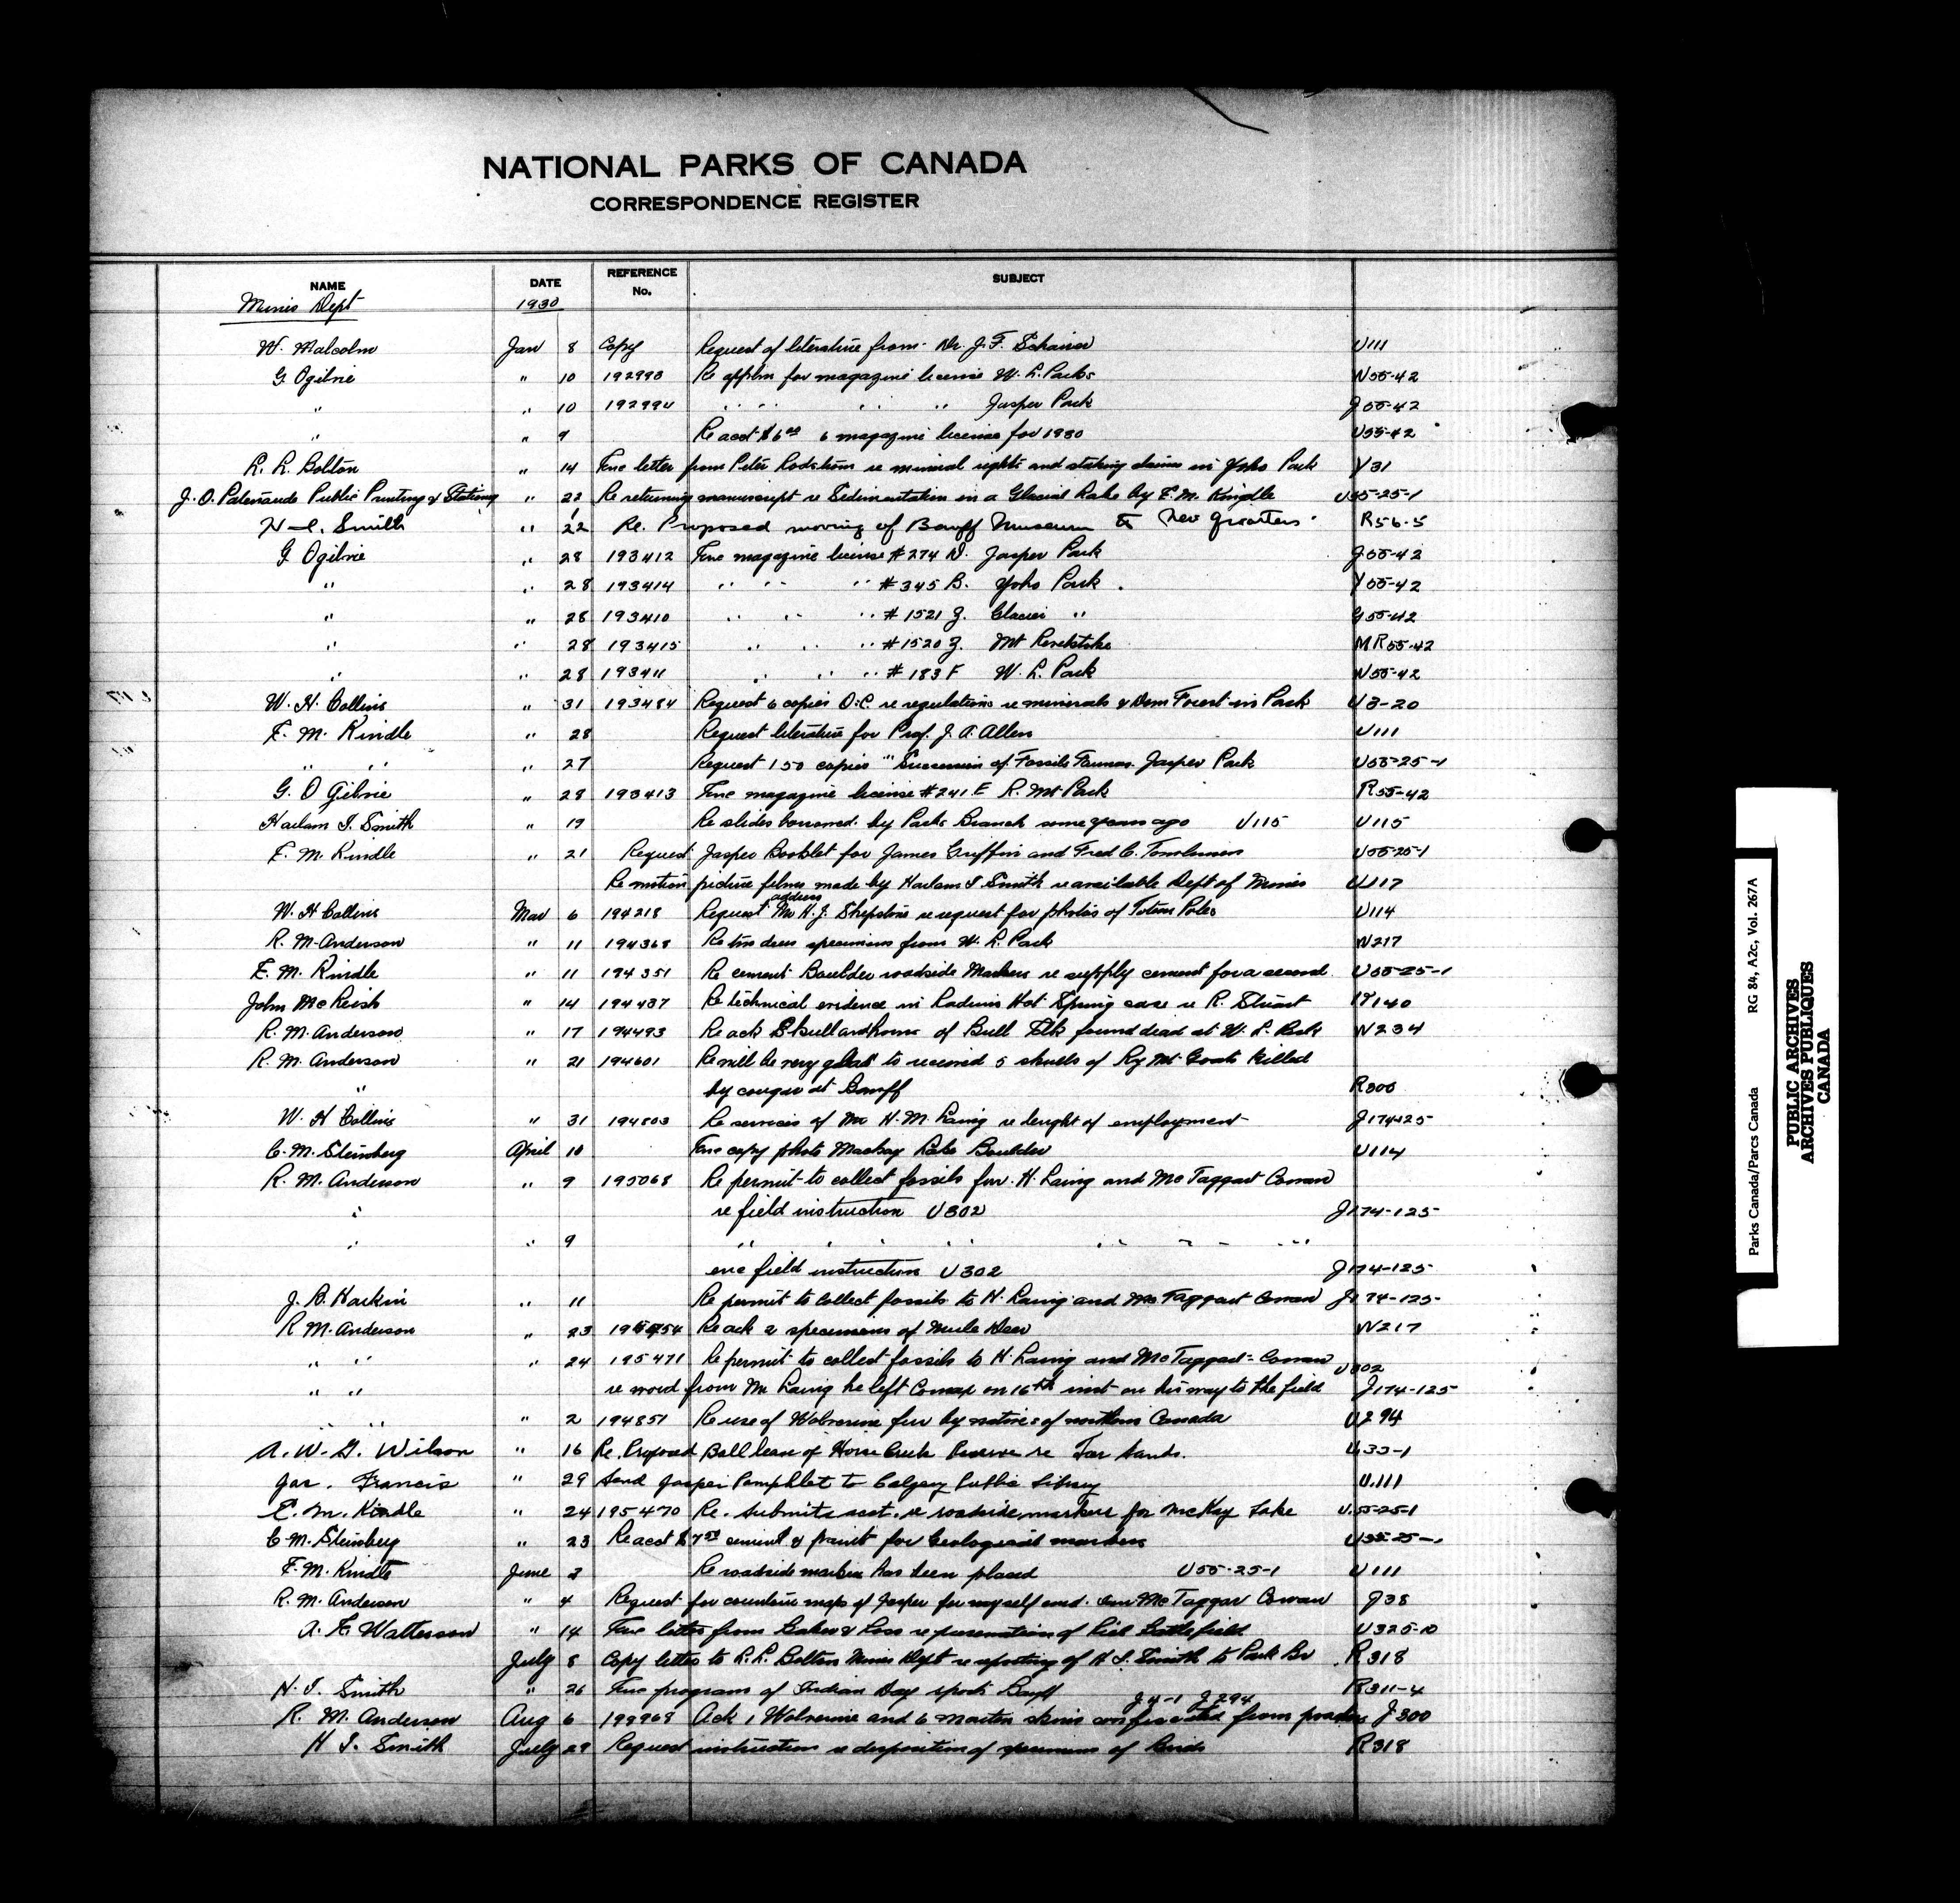 NATIONAL PARKS OF CANADA
CORRESPONDENCE REGISTER
NAME DATE REFERENCE No. SUBJECT
Mines Dept 1930
W. Malcolm Jan 8 Copy Request of literature from Dr. J. F. U111
G Ogilvie " 10 192993 Re appltn for magazine license W. L. Parks W55-42
" " 10 192994 " " " " Jasper Park J55-42
" " 9 Re acct $6.00 6 magazine license for 1930 U55-42
L. L. Bolton " 14 Enc letter from Peter re mineral rights and staking claims in Yoho Park Y31
J. O. Patenaude Public Printing & Stationy " 22 Re returning manuscript re Sedimentation in a Glacial Lake by E. M. Kindle U55-25-1
H-I. Smith " 22 Re. Proposed moving of Banff Museum to New quarters. R56-5
G Ogilvie " 28 193412 Enc magazine license #274 D. Jasper Park J55-42
" " 28 193414 " " " #345 B. Yoho Park Y55-42
" " 28 193410 " " " #1521 Z. Glacier " G55-42
" " 28 193415 " " " #1520 Z. Mt Revelstoke MR55-42
" " 28 193411 " " " #183 F W. L. Park W55-42
W. H. Collins " 31 193484 Request 6 copies O.C. re regulations re minerals & Dom Forest in Park U3-20
E. M. Kindle " 28 Request literature for Prof. J. A. Allen U111
" " " 27 Request 150 copies "Succession of Fossils Faunas Jasper Park U55-25-1
G. Ogilvie " 28 193413 Enc magazine license #241 E R. Mt Park R55-42
Harlan I. Smith " 19 Re slides borrowed by Parks Branch some years ago U115 U115
E. M. Kindle " 21 Request Jasper Booklet for James Griffin and Fred C. Tomlinson U55-25-1
Re motion picture films made by Harlan I Smith re available Dept of Mines U117
W. H Collins Mar 6 194218 Request address Mr H. J. Shepstone re request for photos of Totem Poles U114
R. M. Anderson " 11 194368 Re two deer specimens from W. L. Park W217
E. M. Kindle " 11 194351 Re cement Boulder roadside Markers re supply cement for a second U55-25-1
John McLeish " 14 194437 Re technical evidence in Radium Hot Spring case re R. Stuart 140
R. M. Anderson " 17 194493 Re ack Skull and horns of Bull Elk found dead at W. L. Park W234
R. M. Anderson " 21 194601 Re will be very glad to received 5 skulls of Ry Mt Goats killed
" by cougar at Banff R300
W. H Collins " 31 194803 Re services of Mr H. M. Laing re lenght of employment J174-125
C. M. Sternberg April 10 Enc copy photo Mackay Lake Boulder U114
R. M. Anderson " 9 195068 Re permit to collect fossils for H. Laing and McTaggart Cowan
" re field instruction U302 J174-125
" " 9 " " " " " " "
enc field instruction U302 J174-125
J. B. Harkin " 11 Re permit to collect fossils to H. Laing and McTaggart Cowan J174-125
R M. Anderson " 23 Re ack 2 specimens of Mule Deer W217
" " " 24 195471 Re permit to collect fossils to H. Laing and McTaggart-Cowan U302
" " re word from Mr Laing he left Comox on 16th inst on his way to the field J174-125
" " " 2 194851 Re use of Wolverine fur by natives of northern Canada U294
A. W. G. Wilson " 16 Re. Proposed Ball lease of Horse Creek Reserve re Tar Sands. U33-1
Jas. Francis " 29 Send Jasper Pamphlet to Calgary Public Library U.111
E. M. Kindle " 24 195470 Re. submits acct. re roadside markers for McKay Lake U.55-25-1
C. M. Sternberg " 23 Re acct cement & paint for Geological markers
E. M. Kindle June 2 Re roadside marker has been placed U55-25-1 U111
R. M. Anderson " 4 Request for countour maps of Jasper for myself and McTaggar Cowan J38
A. E. Watterson " 14 Enc letter from re preservation of Battlefield U325-10
July 8 Copy letter to L. L. Bolton Mines Dept re reporting of H I. Smith to Park Br R318
H. I. Smith " 26 Enc program of Indian Day sports Banff R311-4
J4-1 J294
R. M. Anderson Aug 6 Ack 1 Wolverine and 6 marten skins confiscated from J300
H I. Smith July 29 Request instruction re disposition of specimens of Birds R318
Parks Canada/Parcs Canada RG 84, A2c, Vol. 267A
PUBLIC ARCHIVES
ARCHIVES PUBLIQUES
CANADA